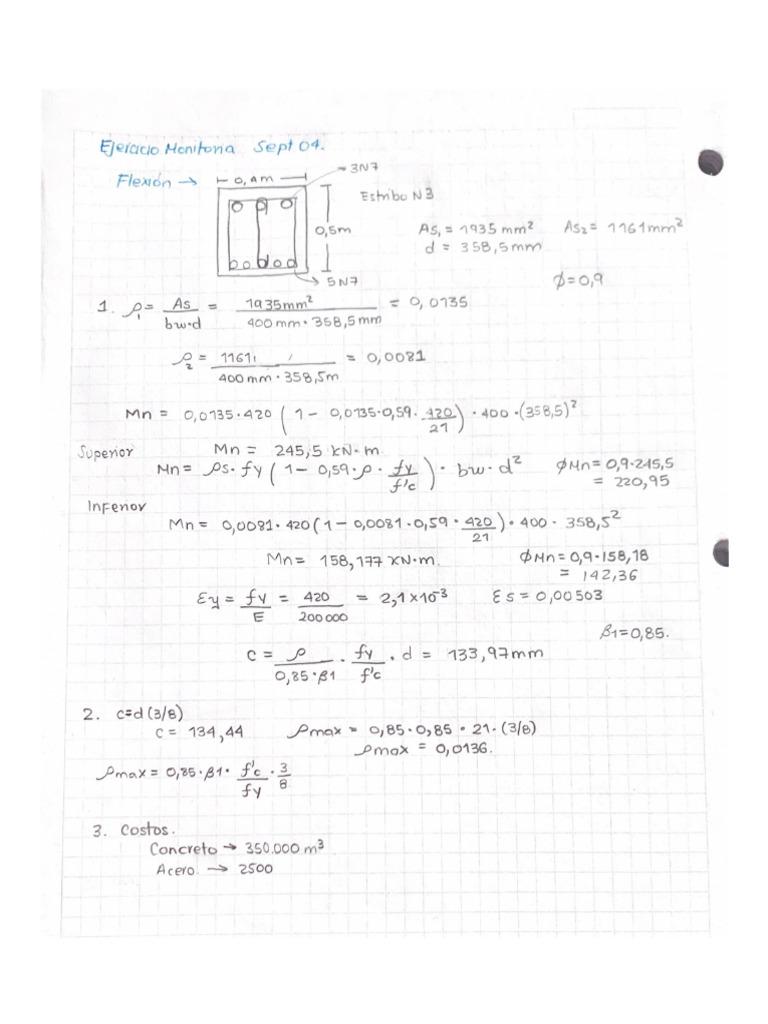 Ejercicio Monitoria Sept 04.
Flexión → 0,4m 3N7
Estribo N3
0,5m As₁ = 1935 mm² As₂ = 1161mm²
d = 358,5mm
5N7
φ=0,9
1. ρ₁ = As / bw·d = 1935mm² / 400 mm · 358,5mm = 0,0135
ρ₂ = 1161 / 400 mm · 358,5m = 0,0081
Mn = 0,0135·420 ( 1 – 0,0135·0,59 · 420/21 ) · 400 · (358,5)²
Superior Mn = 245,5 KN·m
Mn = ρs · fy ( 1 – 0,59·ρ · fy/f'c ) · bw·d² φMn = 0,9·245,5
= 220,95
Inferior
Mn = 0,0081·420 ( 1 – 0,0081·0,59 · 420/21 ) · 400 · 358,5²
Mn = 158,177 KN·m. φMn = 0,9·158,18
= 142,36
Ey = fy/E = 420/200000 = 2,1×10⁻³ Es = 0,00503
β1=0,85.
c = ρ / 0,85·β1 · fy/f'c · d = 133,97mm
2. c=d(3/8)
c = 134,44 ρmax = 0,85·0,85 · 21 · (3/8)
ρmax = 0,0136.
ρmax = 0,85·β1 · f'c/fy · 3/8
3. Costos.
Concreto → 350.000 m³
Acero. → 2500